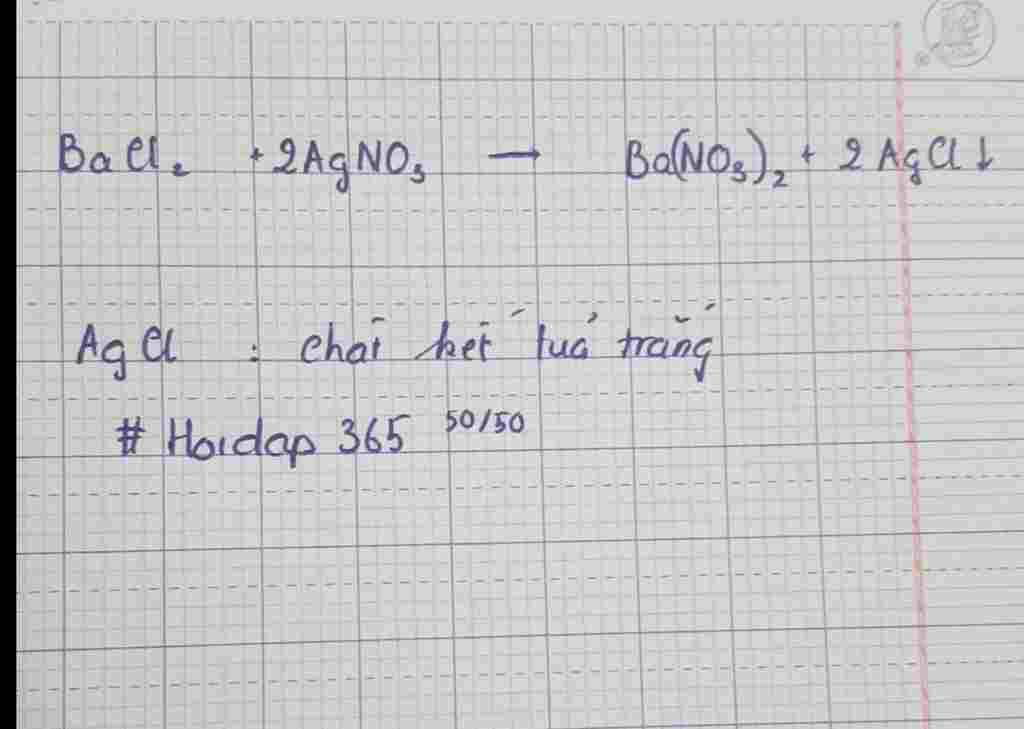 BaCl₂ + 2AgNO₃ → Ba(NO₃)₂ + 2AgCl↓
AgCl : chất kết tủa trắng
# Hoidap 365 50/50